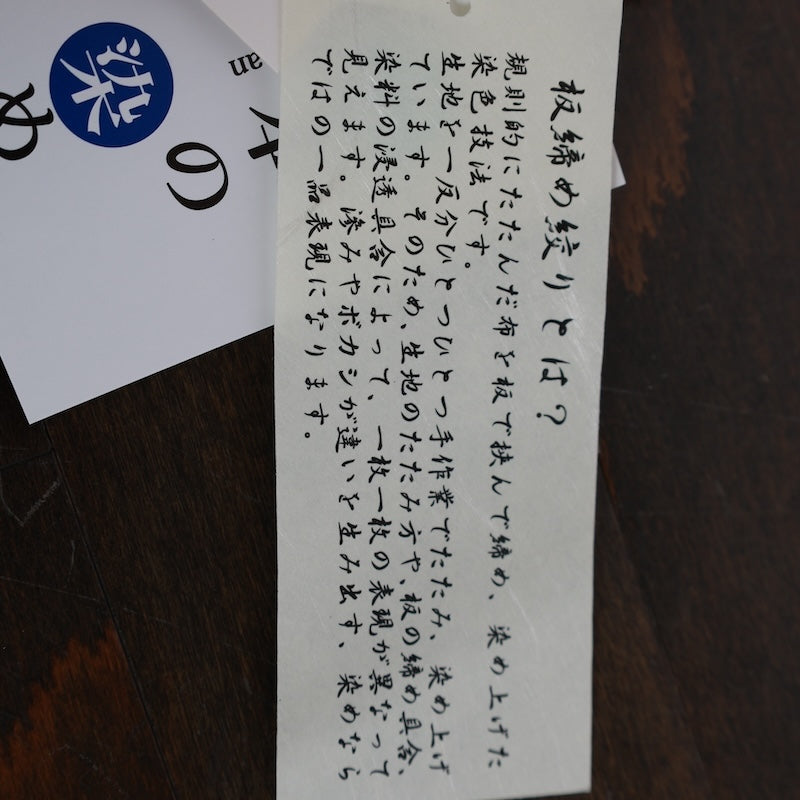 板締め絞りとは？
規則的にたたんだ布を板で挟んで締め、染め上げた
染色技法です。
生地を一反分ひとつひとつ手作業でたたみ、染め上げ
ています。そのため、生地のたたみ方や、板の締め具合、
染料の浸透具合によって、一枚一枚の表現が異なって
見えます。滲みやボカシが違いを生み出す、染めなら
ではの一品表現になります。
染
の
め
an